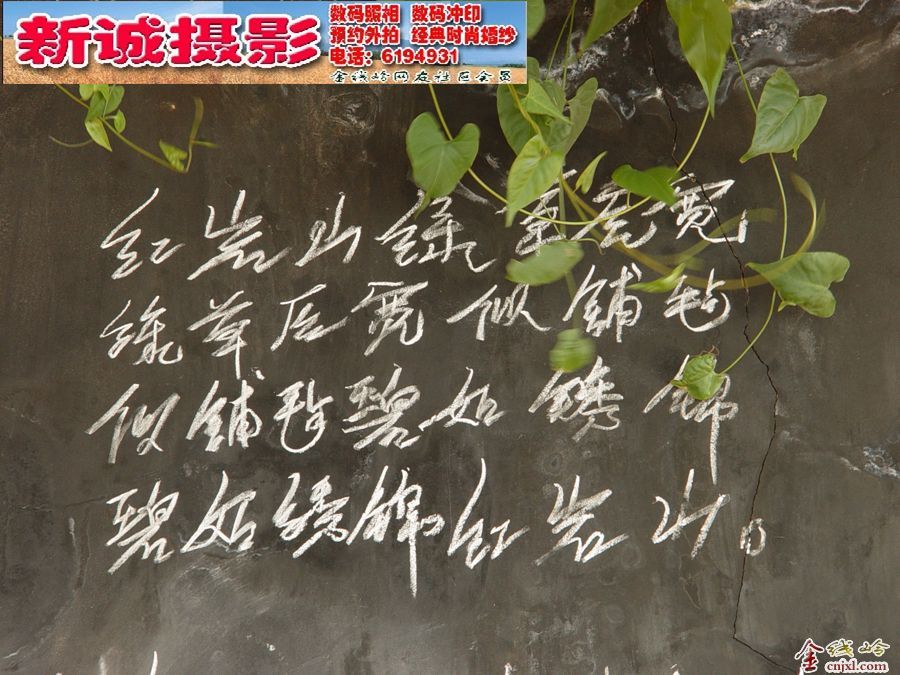 新诚摄影
数码照相 数码冲印
预约外拍 经典时尚婚纱
电话：6194931
金线岭网友社区会员
红岩山绿草茵宽
绿草茵宽似铺毡
似铺毡碧如锈锦
碧如绣锦红岩山。
金线岭
cnjxl.com